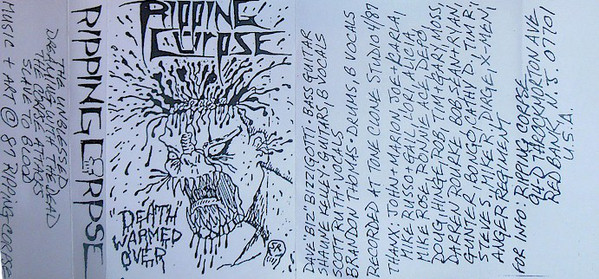 MUSIC + ART © 87 RIPPING CORPSE
THE UNBLESSED
DREAMING WITH THE DEAD
THE CORPSE ATTACKS
SLAVE TO BLOOD
RIPPING CORPSE
RIPPING
CORPSE
"DEATH
WARMED
OVER"
SK
DAVE "BIZ" BIZZIGOTTI - BASS GUITAR
SHAUNE KELLEY - GUITARS, B VOCALS
SCOTT RUTH - VOCALS
BRANDON THOMAS - DRUMS, B VOCALS
RECORDED AT TONE CLONE STUDIO 4/87
THANX: JOHN + MARION, JOE + BARA,
MIKE RUSSO + GAIL, LORI, ALICIA,
MIKE ROSE, RONNIE, ACE, DEB,
DOUG, HINGE, ROB, TIM + GARY, MOSS,
DARREN, ROURKE, BOB, SEAN + RYAN,
GUNTER, BONGO, CATHY D, TIM R,
STEVE S, MIKE N, DIRGE, X-MEN,
ANGER REGIMENT
FOR INFO: RIPPING CORPSE
THROCKMORTON AVE
RED BANK, N.J. 07701
U.S.A.